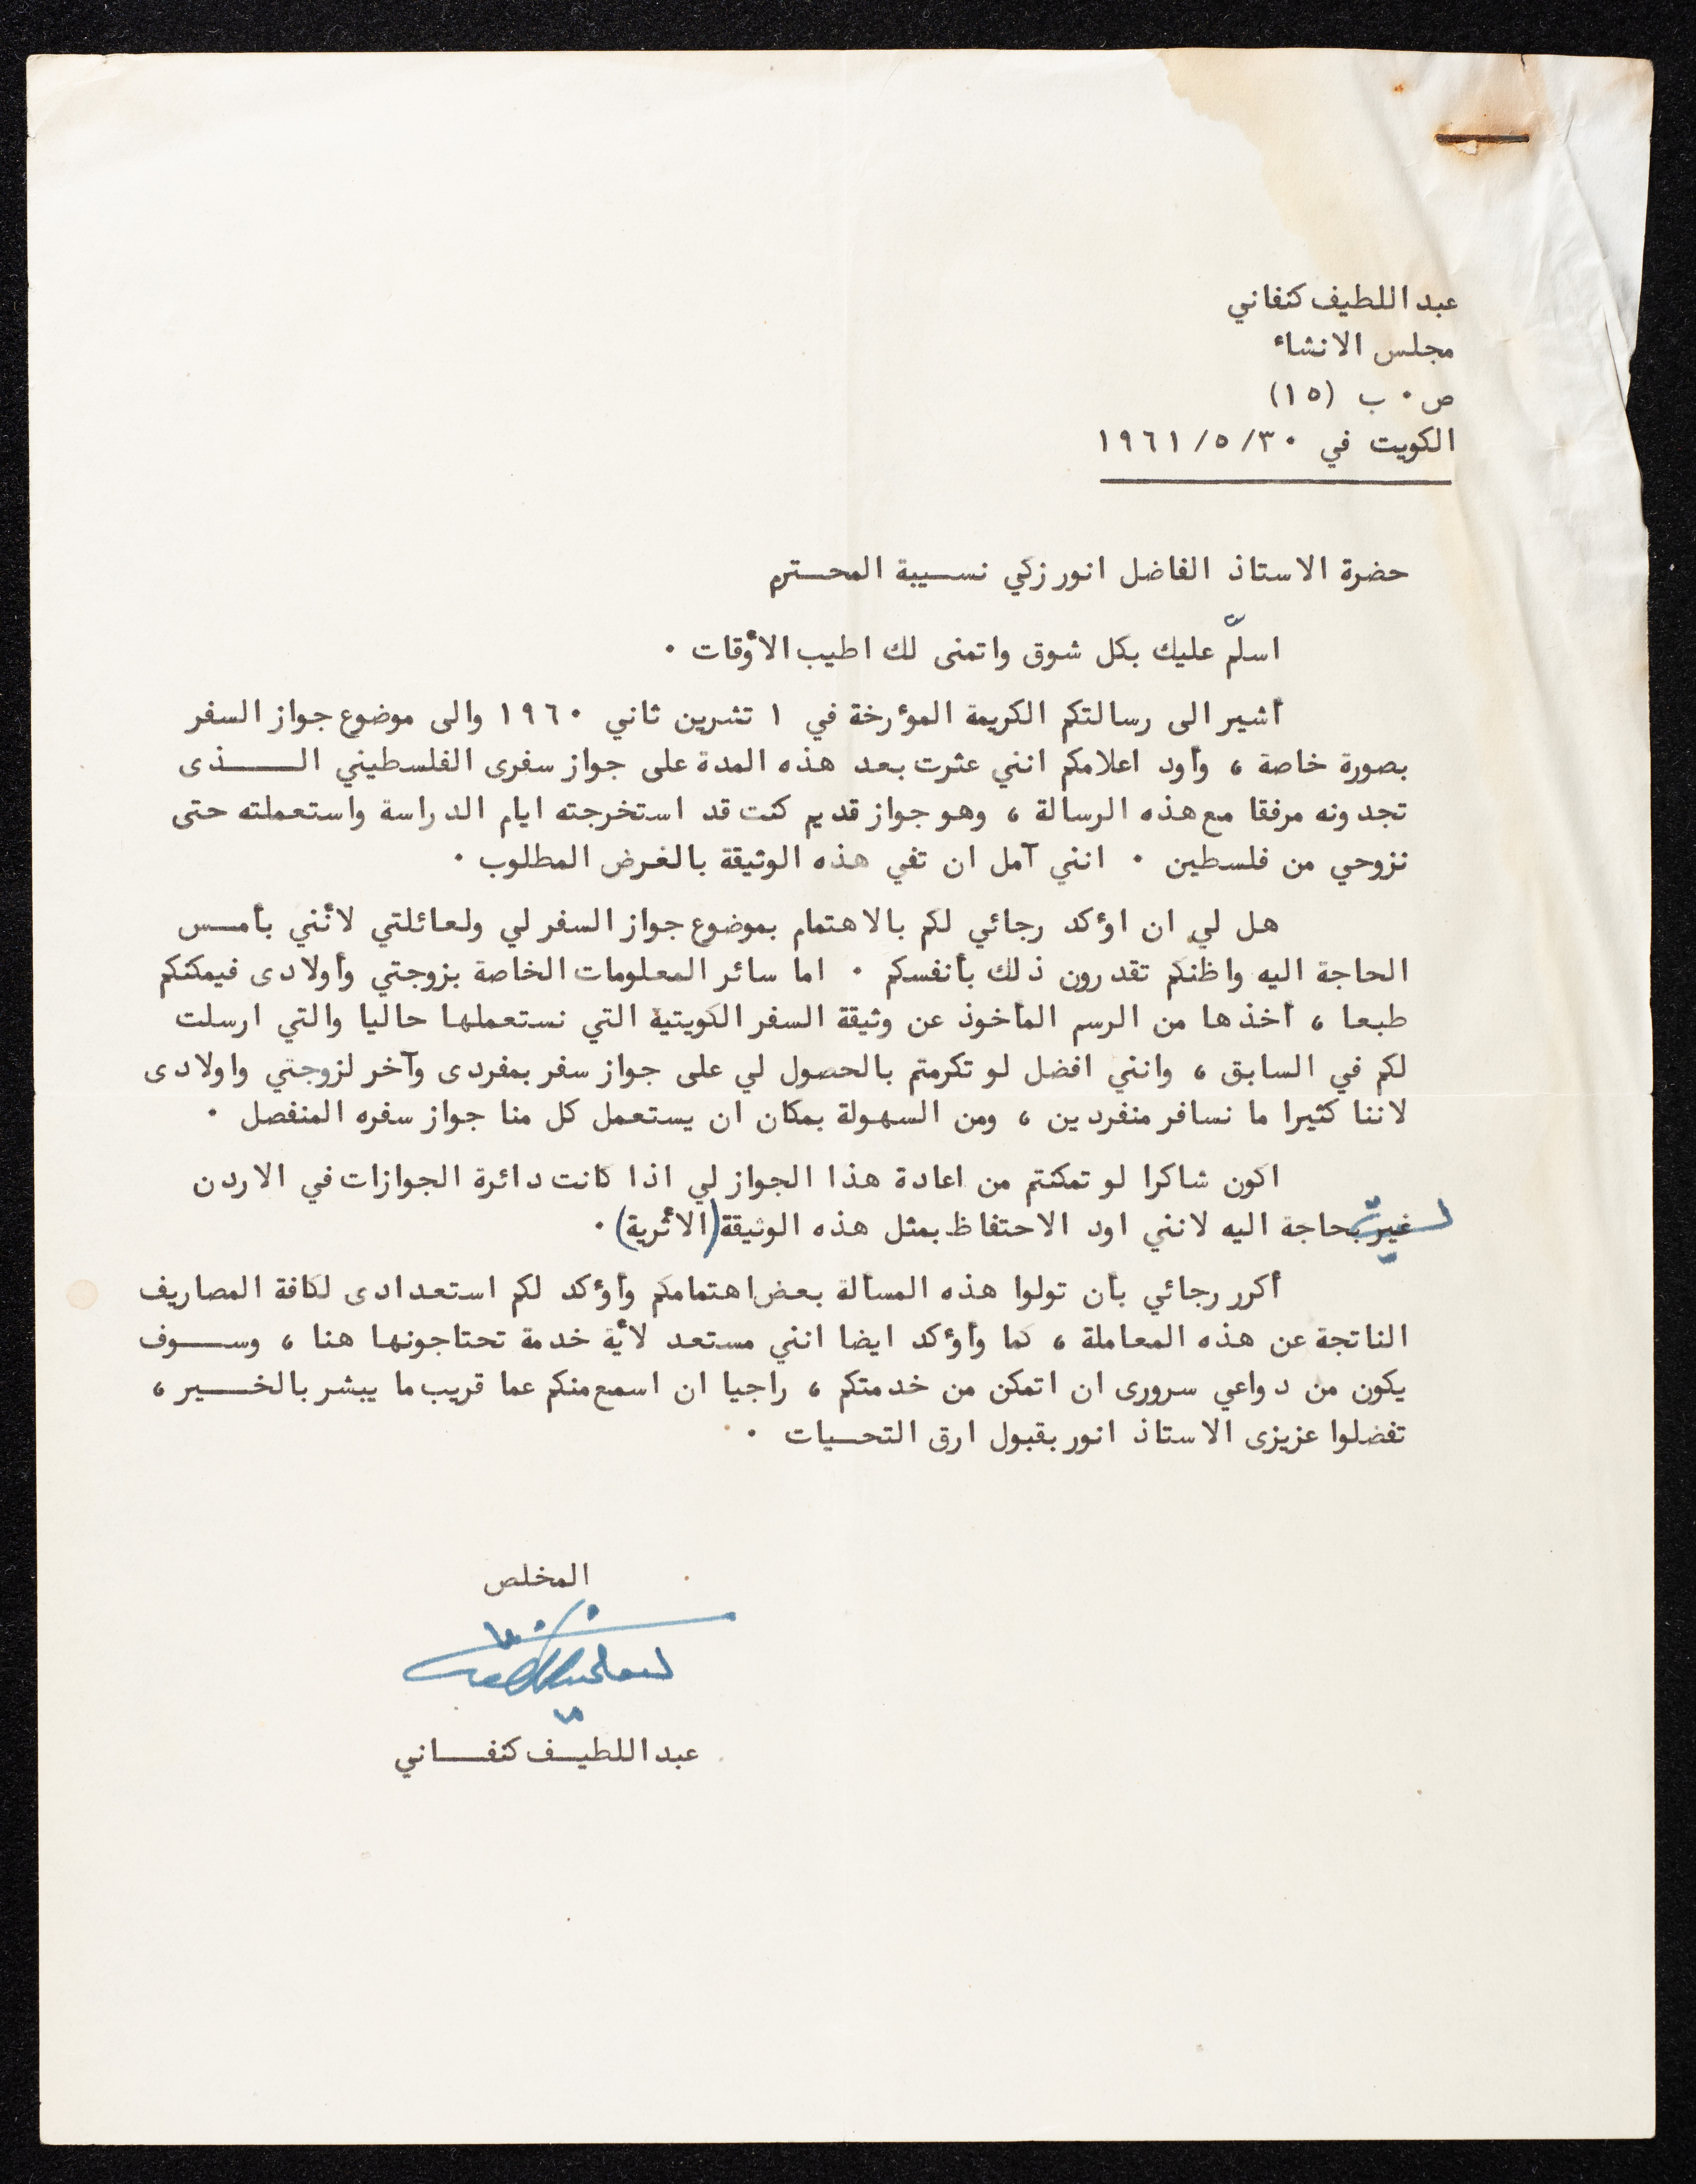 عبد اللطيف كنفاني
مجلس الانشاء
ص ٠ ب (١٥)
الكويت في ٣٠/ ٥/ ١٩٦١
حضرة الاستاذ الفاضل انور زكي نسـيبة المحـترم
اسلّم عليك بكل شوق واتمنى لك اطيب الأوقات ٠
أشير الى رسالتكم الكريمة المؤرخة في ١ تشرين ثاني ١٩٦٠ والى موضوع جواز السفر
بصورة خاصة ، وأود اعلامكم انني عثرت بعد هذه المدة على جواز سفرى الفلسطيني الـــذى
تجدونه مرفقا مع هذه الرسالة ، وهو جواز قديم كنت قد استخرجته ايام الدراسة واستعملته حتى
نزوحي من فلسطين ٠ انني آمل ان تفي هذه الوثيقة بالغرض المطلوب ٠
هل لي ان اؤكد رجائي لكم بالاهتمام بموضوع جواز السفر لي ولعائلتي لأنني بأمـس
الحاجة اليه واظنكم تقدرون ذلك بأنفسكم ٠ اما سائر المعلومات الخاصة بزوجتي وأولادى فيمكنكم
طبعا ، أخذها من الرسم المأخوذ عن وثيقة السفر الكويتية التي نستعملها حاليا والتي ارسلت
لكم في السابق ، وانني افضل لو تكرمتم بالحصول لي على جواز سفر بمفردى وآخر لزوجتي واولادى
لاننا كثيرا ما نسافر منفردين ، ومن السهولة بمكان ان يستعمل كل منا جواز سفره المنفصل ٠
اكون شاكرا لو تمكنتم من اعادة هذا الجواز لي اذا كانت دائرة الجوازات في الاردن
ليست بحاجة اليه لانني اود الاحتفاظ بمثل هذه الوثيقة (الأثرية) ٠
أكرر رجائي بأن تولوا هذه المسألة بعض اهتمامكم وأؤكد لكم استعدادى لكافة المصاريف
الناتجة عن هذه المعاملة ، كما وأؤكد ايضا انني مستعد لأية خدمة تحتاجونها هنا ، وســوف
يكون من دواعي سرورى ان اتمكن من خدمتكم ، راجيا ان اسمع منكم عما قريب ما يبشر بالخــير ،
تفضلوا عزيزى الاستاذ انور بقبول ارق التحـيات ٠
المخلص
عبد اللطيـف كنفــاني